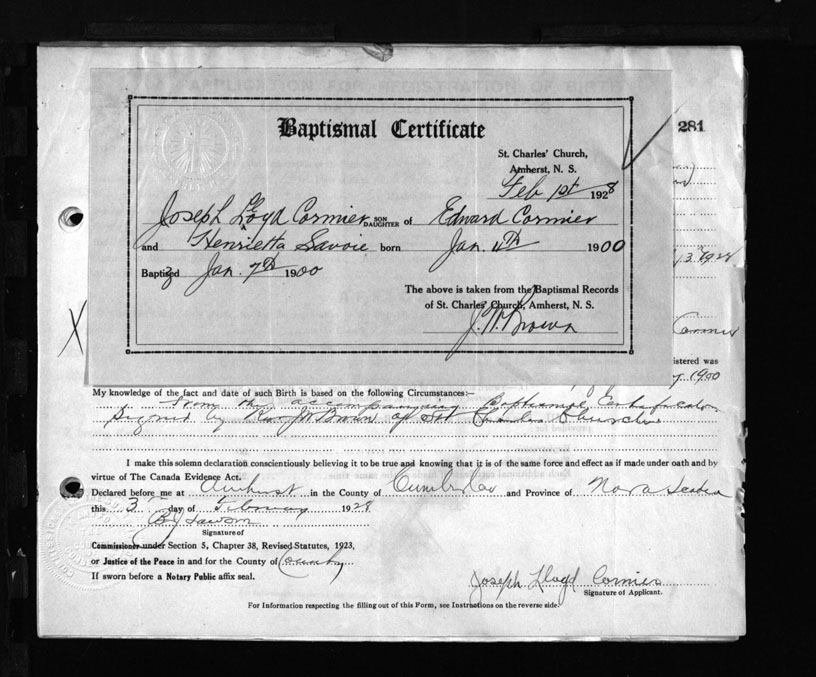 281
Baptismal Certificate
St. Charles' Church,
Amherst, N. S.
Feb 1st 1928
Joseph Lloyd Cormier SON DAUGHTER of Edward Cormier
and Henrietta Savoie born Jan. 4th 1900
Baptized Jan. 7th 1900
The above is taken from the Baptismal Records
of St. Charles' Church, Amherst, N. S.
J. W. Brown
Cormier
istered was
1900
My knowledge of the fact and date of such Birth is based on the following Circumstances:—
from the accompanying Baptismal Certificate
Signed by Rev J W Brown of St Charles Church
I make this solemn declaration conscientiously believing it to be true and knowing that it is of the same force and effect as if made under oath and by
virtue of The Canada Evidence Act.
Declared before me at Amherst in the County of Cumberland and Province of Nova Scotia
this 3 day of February 1928
Signature of
Commissioner under Section 5, Chapter 38, Revised Statutes, 1923,
or Justice of the Peace in and for the County of
If sworn before a Notary Public affix seal.
Joseph Lloyd Cormier
Signature of Applicant.
For Information respecting the filling out of this Form, see Instructions on the reverse side.